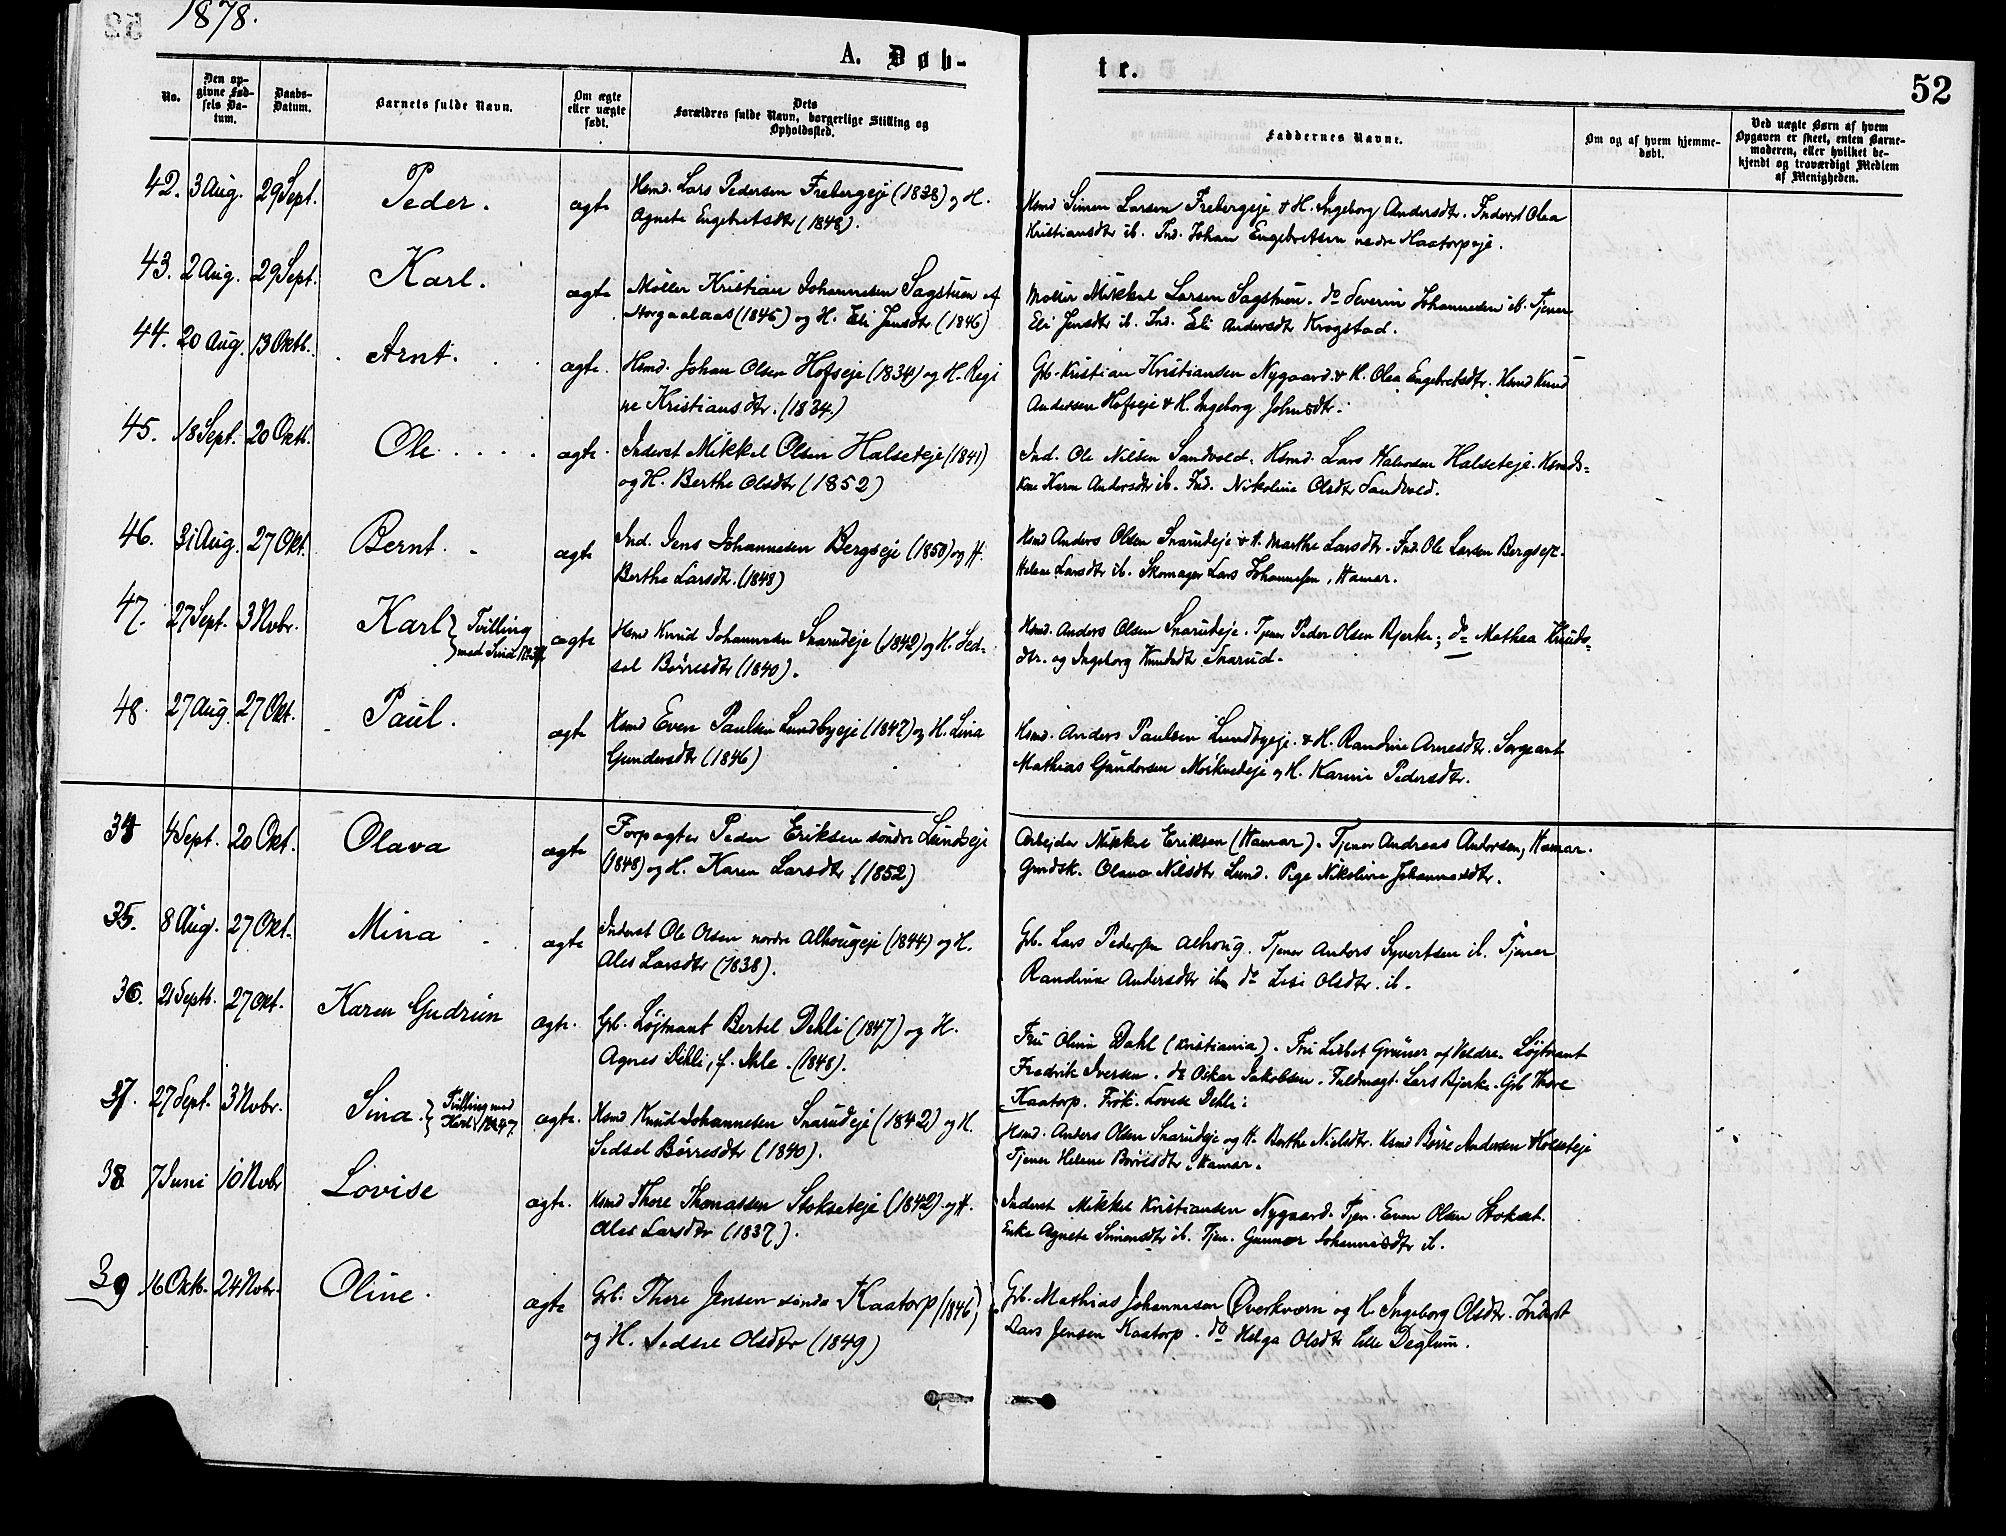 1878.
A. Døb-
tr.
52
No.
Den op-
givne Fød-
sels Da-
tum.
Daabs-
Datum.
Barnets fulde Navn.
Om ægte
eller uægte
født.
Dets
Forældres fulde Navn, borgerlige Stilling og
Opholdssted.
Faddernes Navne.
Om og af hvem hjemme-
døbt.
Ved uægte Børn af hvem
Opgaven er skeet, enten Barne-
moderen, eller hvilket be-
kjendt og troværdigt Medlem
af Menigheden.
42. 3 Aug. 29 Sept. Peder. ægte Hsmd. Lars Pedersen Frebergeje (1838) og H.
Agnete Engebretsdtr (1848).
Hsmd Simen Larsen Frebergeje & H. Ingeborg Andersdtr. Inderst Olea
Kristiansdtr ib. Ind. Johan Engebretsen nedre Kaatorpeje.
43. 2 Aug. 29 Sept. Karl. ægte Møller Kristian Johannesen Sagstuen af
(1845) og H. Eli Jensdtr (1846)
Møller Mikkel Larsen Sagstuen. do Severin Johannesen ib. Tjener
Eli Jensdtr ib. Ind. Eli Andersdtr Krogstad.
44. 20 Aug. 13 Oktb. Arnt. ægte. Hsmd. Johan Olsen Hofseje (1834) og H. Regi
ne Kristiansdtr. (1834.)
Grb. Kristian Kristiansen Nygaard & H. Olea Engebretsdtr. Hsmd Knud
Andersen Hofseje & H. Ingeborg Johnsdtr.
45. 18 Sept. 20 Oktb. Ole. ægte. Inderst Mikkel Olsen Halseteje (1841)
og H. Berthe Olsdtr (1852)
Ind. Ole Nilsen Sandvold. Hsmd. Lars Halvorsen Halseteje. Hsmds-
kone Karen Andersdtr ib. Ind. Nikoline Olsdtr Sandvold.
46. 31 Aug. 27 Okt. Bernt. ægte Ind. Jens Johannesen Bergseje (1850) og H.
Berthe Larsdtr. (1848)
Hsmd Anders Olsen Snarudeje & H. Marthe Larsdtr. Ind. Ole Larsen Bergseje.
Helene Larsdtr ib. Skomager Lars Johannesen, Hamar.
47. 27 Sept. 3 Novbr. Karl } Tvilling
med Sina No 37 ægte Hsmd Knud Johannesen Snarudeje (1842) og H. Sed-
sel Børresdtr (1840).
Hsmd. Anders Olsen Snarudeje. Tjener Peder Olsen Bjerke; do Mathea Knuds-
dtr. og Ingeborg Knudsdtr Snarud.
48. 27 Aug. 27 Okt. Paul. ægte Hsmd Even Paulsen Lundbyeje (1847) og H. Lina
Gundersdtr (1846)
Hsmd. Anders Paulsen Lundbyeje. & H. Randine Arnesdtr. Sergeant
Mathias Gundersen og H. Karine Pedersdtr.
34 4 Sept. 20 Okt. Olava ægte Forpagter Peder Eriksen søndre Lundseje
(1848) og H. Karen Larsdtr (1852)
Arbejder Mikkel Eriksen (Hamar). Tjener Andreas Andersen, Hamar.
Grmdsk. Olava Nilsdtr Lund. Pige Nikoline Johannesdtr.
35. 8 Aug. 27 Okt. Mina ægte Inderst Ole Olsen nordre Alhougeje (1844) og H.
Ales Larsdtr (1838).
Grb. Lars Pedersen Alhoug. Tjener Anders Syvertsen ib. Tjener
Randine Andersdtr ib do Lisi Olsdtr. ib.
36. 21 Septb. 27 Okt. Karen Gudrun ægte. Grb. Løjtnant Bertel Dehli (1847) og H.
Agnes Dehli, f. Mæhle. (1848).
Fru Oline Dahl (Kristiania). Fru Lisbet Grüner af Veldre. Løjtnant
Fredrik Iversen. do Oskar Jakobsen. Fuldmægt. Lars Bjerke. Grb Thore
Kaatorp. Frøk. Lovise Dehli.
37. 27 Sept. 3 Novbr. Sina } Tvilling med
Karl No 47. ægte. Hsmd Knud Johannesen Snarudeje (1842) og H.
Sedsel Børresdtr (1840).
Hsmd. Anders Olsen Snarudeje og H. Berthe Nielsdtr. Hsmd Børre Andersen Holseteje
Tjener Helene Børresdtr, Hamar.
38 7 Juni 10 Novbr Lovise ægte. Hsmd Thore Thomassen Stokseteje (1842) og H.
Ales Larsdtr (1837).
Inderst Mikkel Kristiansen Nygaard. Tjen. Even Olsen Stokset.
Enke Agnete Simensdtr ib. Tjen. Gunnor Johannesdtr ib.
39 16 Oktb. 24 Novbr. Oline. ægte Grb. Thore Jensen søndre Kaatorp (1846)
og H. Sedsel Olsdtr (1849)
Grb. Mathias Johannesen Øverkværn og H. Ingeborg Olsdtr. Inderst
Lars Jensen Kaatorp. do Helga Olsdtr lille Deglum.